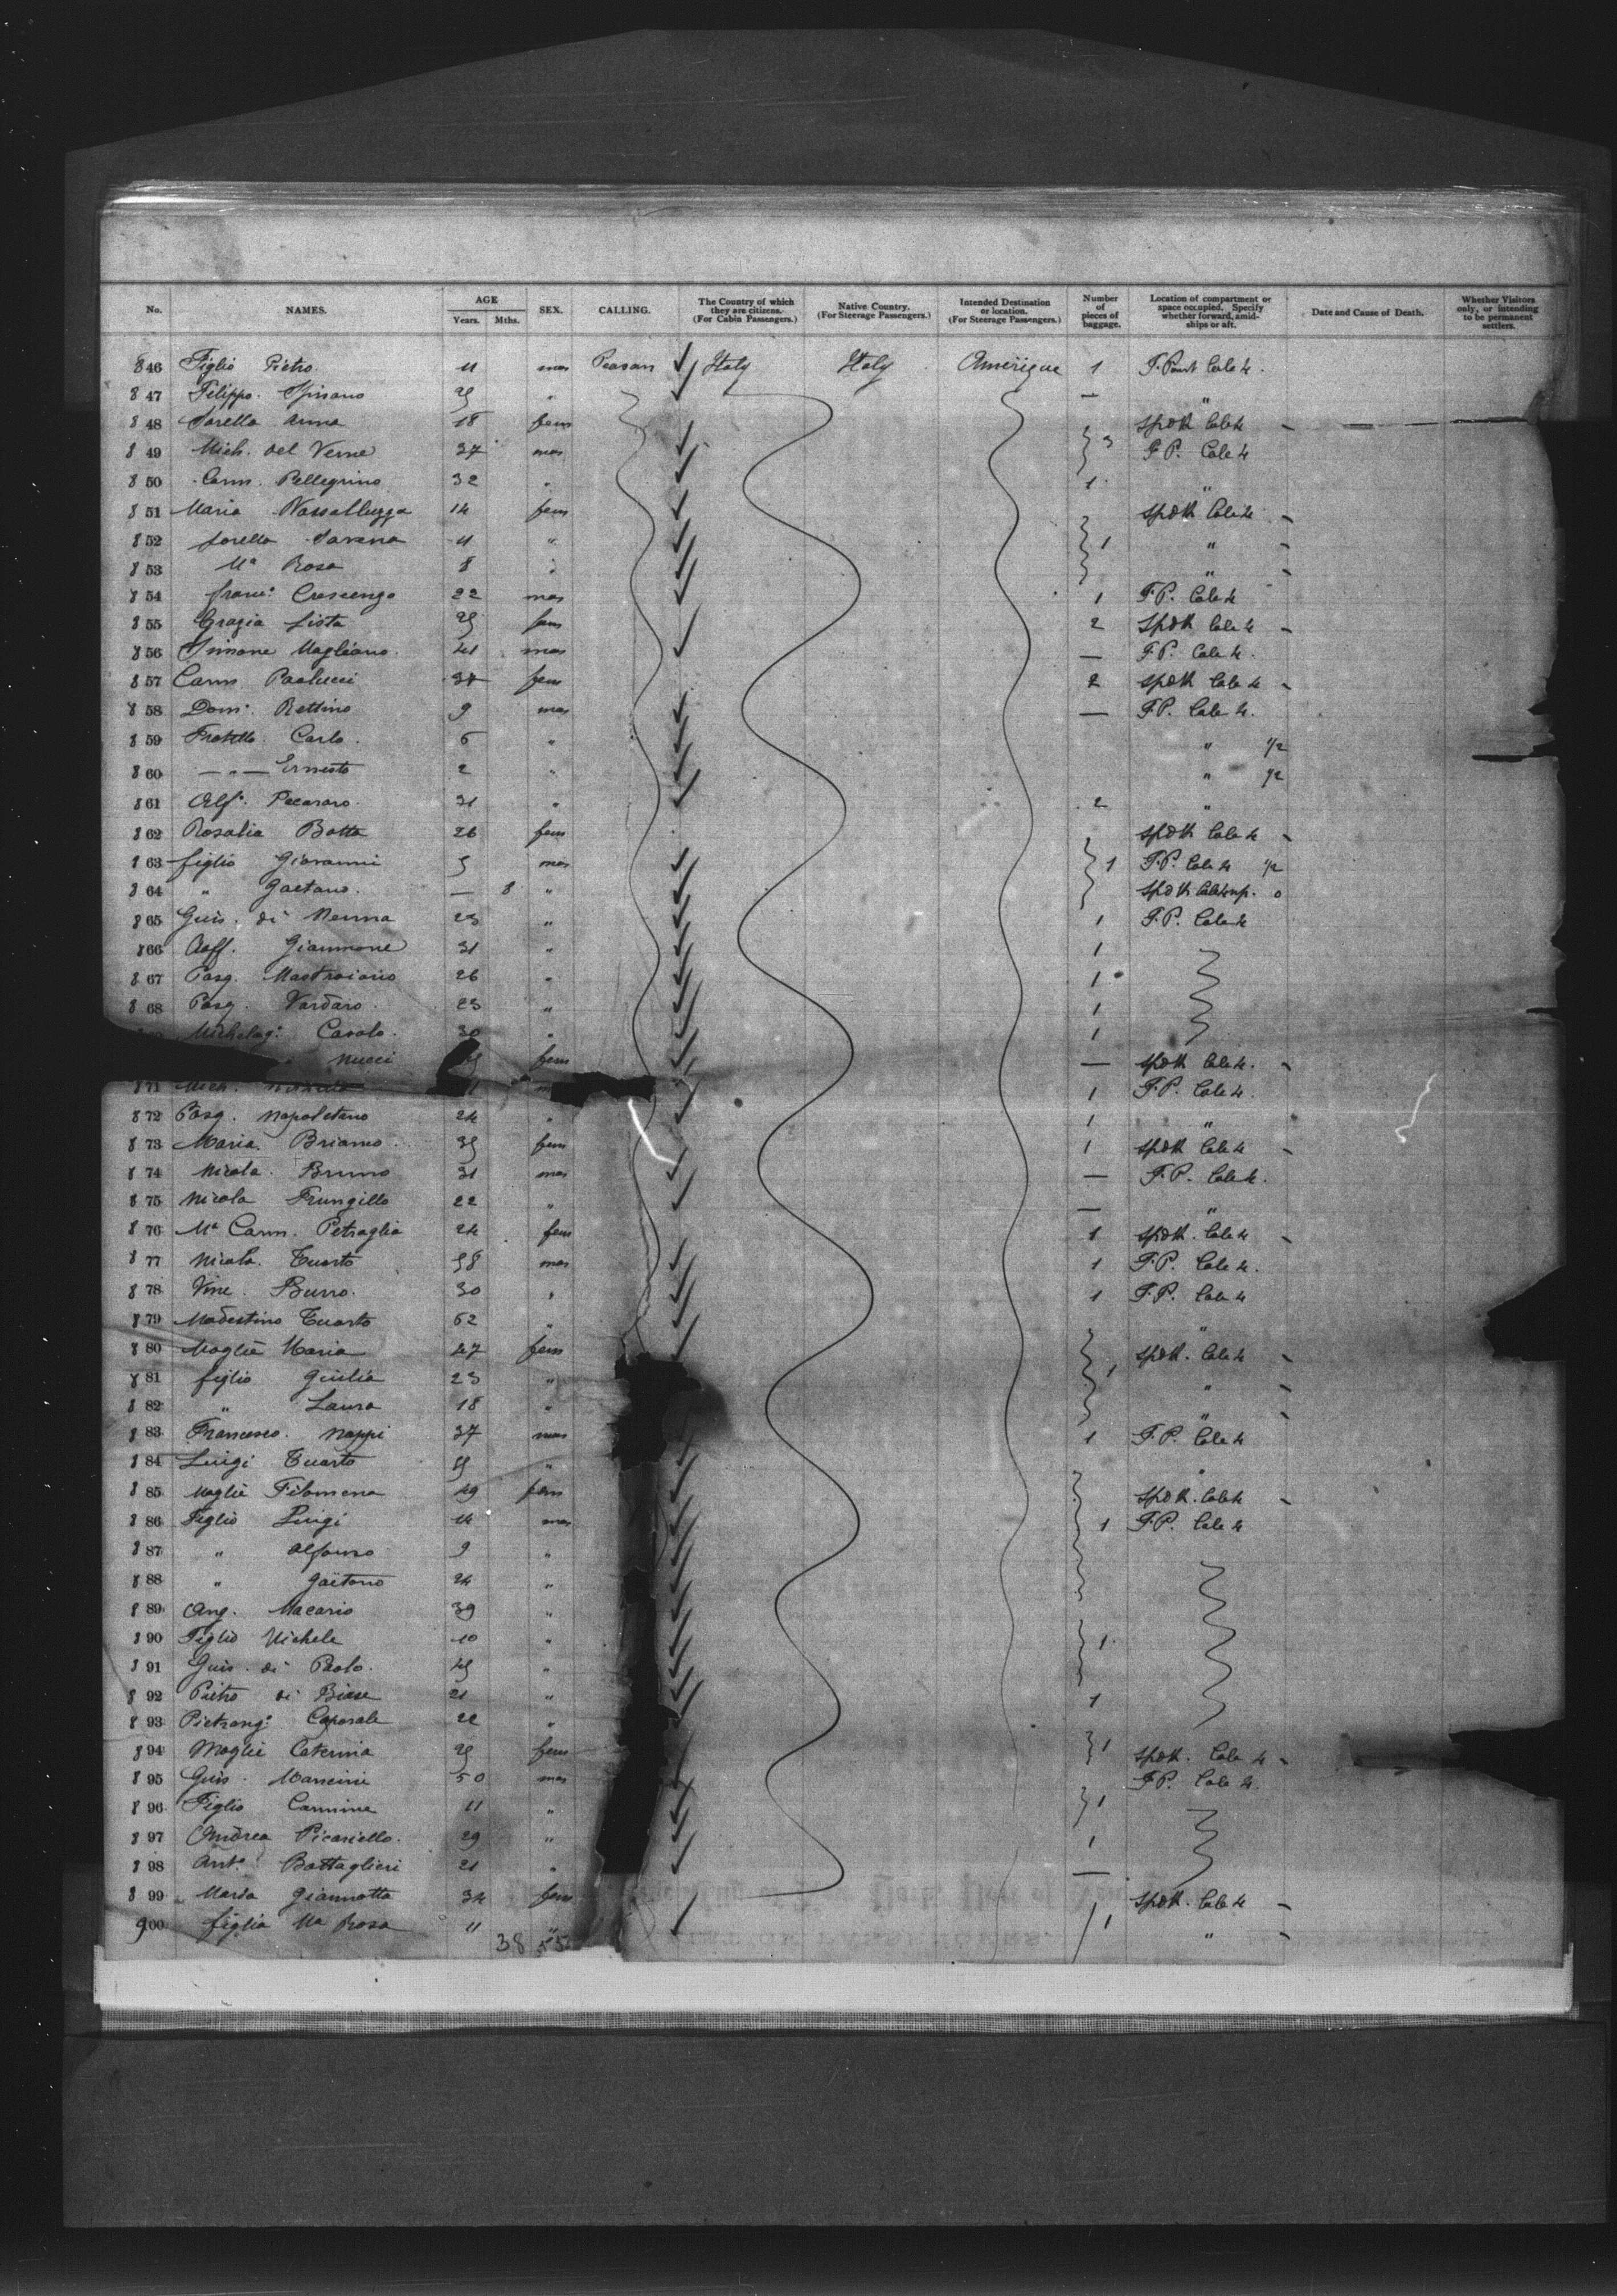 No. NAMES. AGE Years. Mths. SEX. CALLING. The Country of which they are citizens. (For Cabin Passengers.) Native Country. (For Steerage Passengers.) Intended Destination or location. (For Steerage Passengers.) Number of pieces of baggage. Location of compartment or space occupied. Specify whether forward, amidships or aft. Date and Cause of Death. Whether Visitors only, or intending to be permanent settlers.
846 Figlio Pietro 11 mas Peasan Italy Italy Amérique 1 Cale 4.
847 Filippo Spisano "
848 Sorella Anna 18 fem Cale 4
849 Mich. del Verme 37 mas 3 F.P. Cale 4
850 Carm. Pellegrino 32 " 1 "
851 Maria 14 fem Cale 4
852 Sorella 11 " 1 "
853 Ma Rosa 8 " "
854 Franc. Crescenzo 22 mas 1 F.P. Cale 4
855 Grazia Lista fem 2 Cale 4
856 Simone Magliano 41 mas — F.P. Cale 4.
857 Carm. Paolucci 37 fem 2 Cale 4
858 Dom. Rettino 9 mas — F.P. Cale 4.
859 Fratello Carlo. 6 " " 1/2
860 — " — Ernesto 2 " " 1/2
861 Alf. Pecararo 31 " 2 "
862 Rosalia Botta 26 fem Cale 4
863 figlio Giovanni 5 mas 1 F.P. Cale 4 1/2
864 " Gaetano. — 8 " 0
865 Guis. di Menna 23 " 1 F.P. Cale 4
866 Raff. Giannone 31 " 1
867 Pasq. Mastroiario 26 " 1
868 Pasq. Vardaro 23 " 1
Michelag. Casolo. 30 " 1
Nucci fem — Cale 4.
871 Mich. 1 F.P. Cale 4.
872 Pasq. Napoletano 24 " 1 "
873 Maria Briamo fem 1 Cale 4
874 Nicola Bruno 31 mas — F.P. Cale 4.
875 Nicola Frungillo 22 " — "
876 Ma Carm. Petraglia 24 fem 1 Cale 4
877 Nicola Tuarto 58 mas 1 F.P. Cale 4.
878 Vinc. Burro. 30 " 1 F.P. Cale 4
879 Modestino Tuarto 62 " "
880 Moglie Maria 47 fem 1 Cale 4
881 figlio Giulia 23 " "
882 " Laura 18 " "
883 Francesco Nappi 37 mas 1 F.P. Cale 4
884 Luigi Tuarto " "
885 Moglie Filomena 49 fem Cale 4
886 Figlio Luigi 14 mas 1 F.P. Cale 4
887 " Alfonso 9 "
888 " Gaetano 24 "
889 Ang. Macario 39 "
890 Figlio Michele 10 " 1
891 Guis. di Paolo. "
892 Pietro di Biase 21 " 1
893 Pietrang. Caporale 22 "
894 Moglie Caterina fem 1 Cale 4
895 Guis. Mancini 50 mas F.P. Cale 4.
896 Figlio Carmine 11 " 1
897 Andrea Picariello. 29 " 1
898 Anto Battaglieri 21 " —
899 Maria Giannotta 34 fem Cale 4
900 figlia Ma Rosa 11 " 1 "
38 55